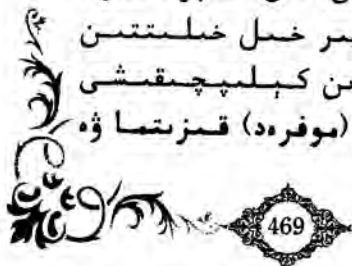 ىر خىل خىلىتتىن
ىن كېلىپچىقىشى
(موفرەد) قىزىتما ۋە
469